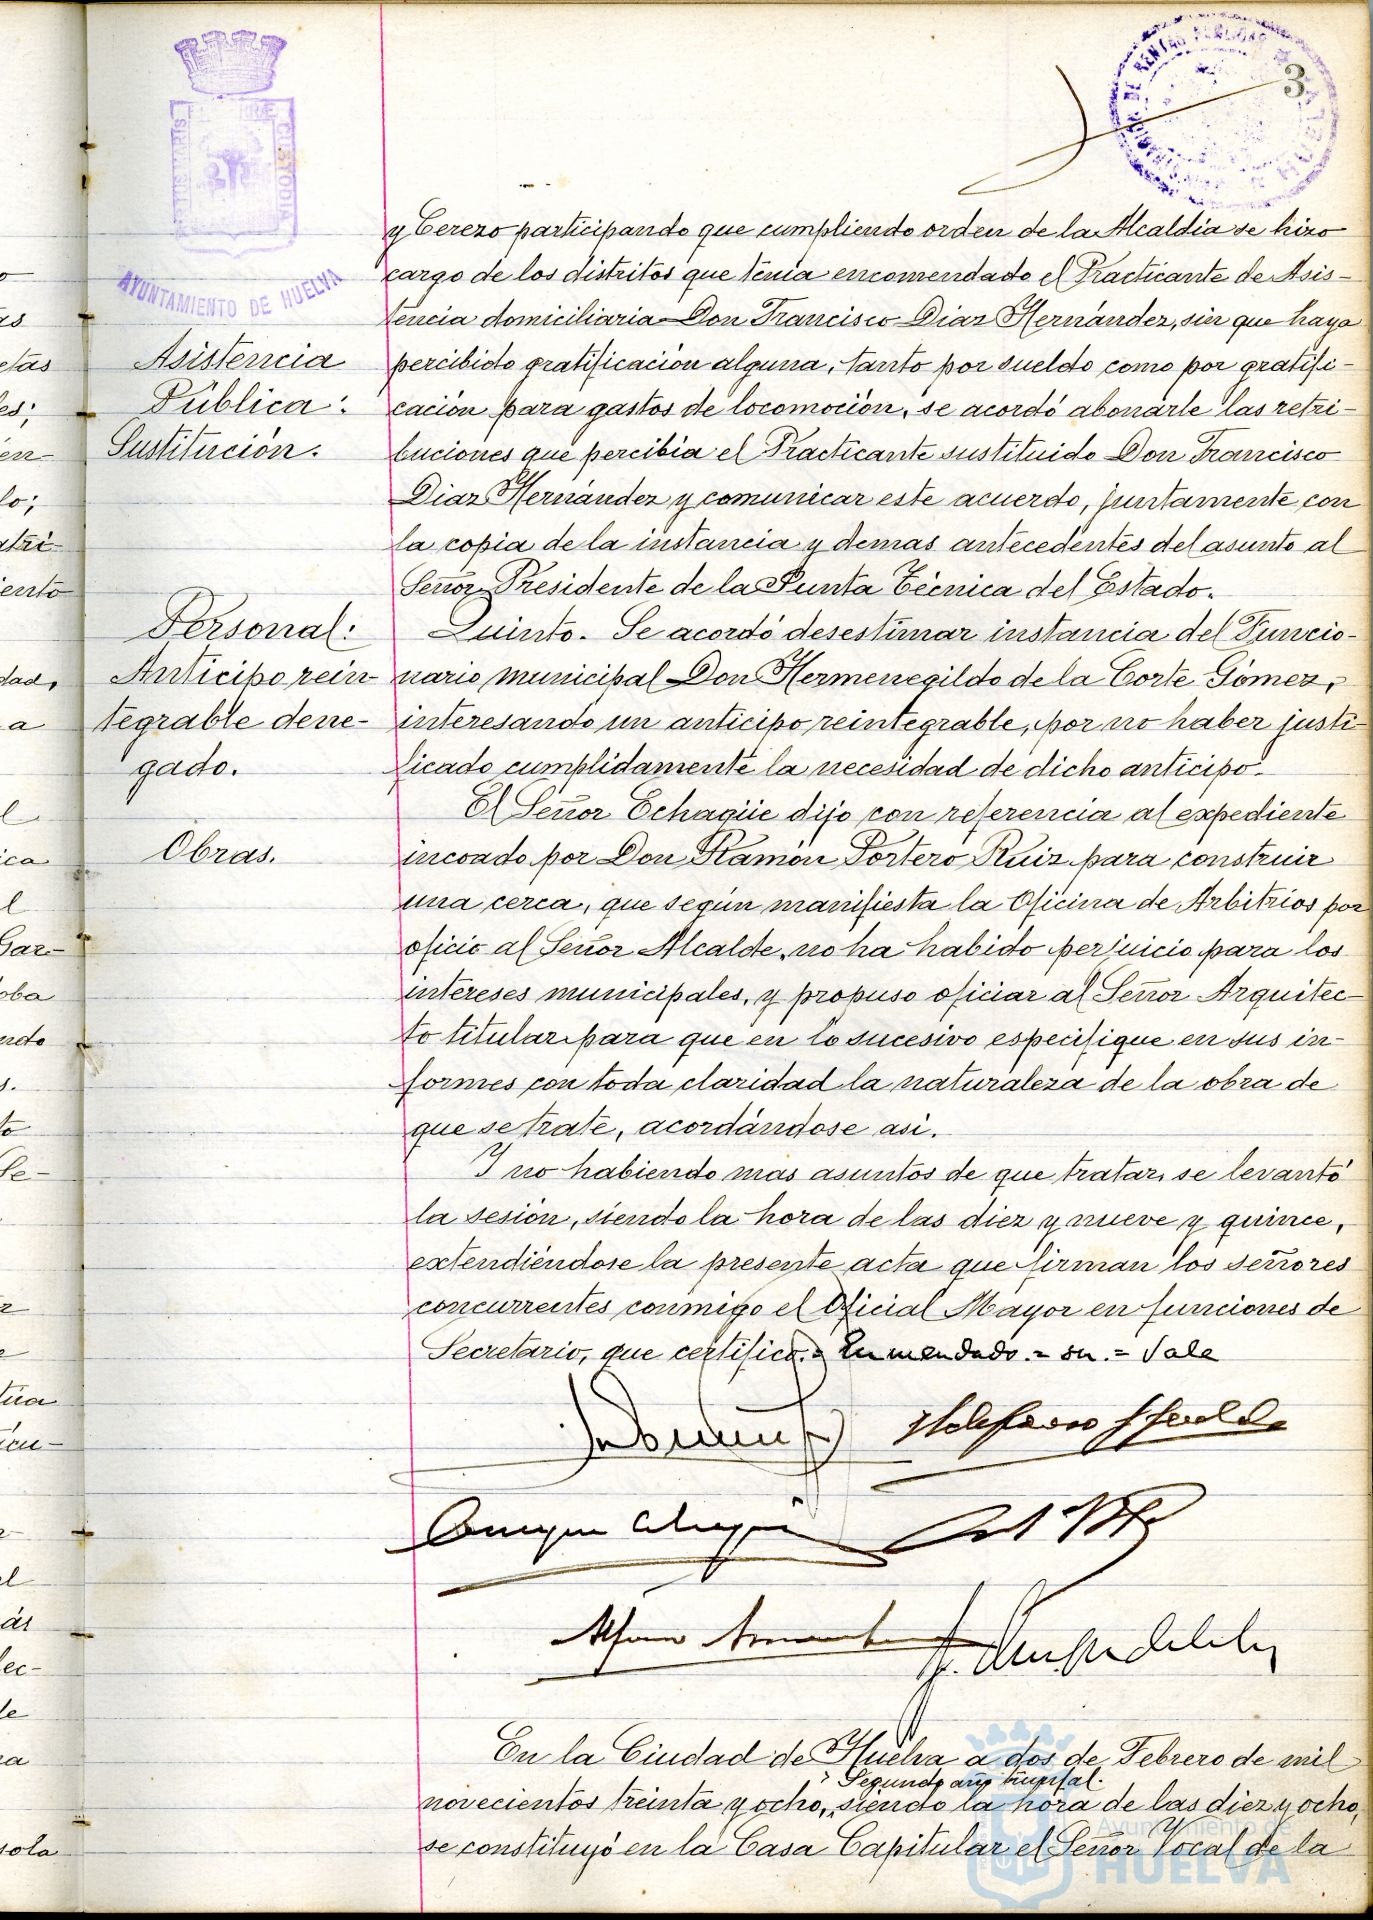 3
AYUNTAMIENTO DE HUELVA
y Cerezo participando que cumpliendo orden de la Alcaldía se hizo
cargo de los distritos que tenia encomendado el Practicante de Asis-
tencia domiciliaria Don Francisco Diaz Hernández, sin que haya
Asistencia
Pública:
Sustitución.
percibido gratificación alguna, tanto por sueldo como por gratifi-
cación para gastos de locomoción, se acordó abonarle las retri-
buciones que percibia el Practicante sustituido Don Francisco
Diaz Hernández y comunicar este acuerdo, juntamente con
la copia de la instancia y demas antecedentes del asunto al
Señor Presidente de la Junta Técnica del Estado.
Personal:
Anticipo rein-
tegrable dene-
gado.
Quinto. Se acordó desestimar instancia del Funcio-
nario municipal Don Hermenegildo de la Corte Gómez,
interesando un anticipo reintegrable, por no haber justi-
ficado cumplidamente la necesidad de dicho anticipo.
Obras.
El Señor Echagüe dijo con referencia al expediente
incoado por Don Ramón Portero Ruiz para construir
una cerca, que según manifiesta la Oficina de Arbitrios por
oficio al Señor Alcalde, no ha habido perjuicio para los
intereses municipales, y propuso oficiar al Señor Arquitec-
to titular para que en lo sucesivo especifique en sus in-
formes con toda claridad la naturaleza de la obra de
que se trate, acordándose asi.
Y no habiendo mas asuntos de que tratar, se levantó
la sesión, siendo la hora de las diez y nueve y quince,
extendiéndose la presente acta que firman los señores
concurrentes conmigo el Oficial Mayor en funciones de
Secretario, que certifico.= Enmendado.= su.= Vale
En la Ciudad de Huelva a dos de Febrero de mil
Segundo año triunfal.
novecientos treinta y ocho, siendo la hora de las diez y ocho,
se constituyó en la Casa Capitular el Señor Vocal de la
Ayuntamiento de
HUELVA